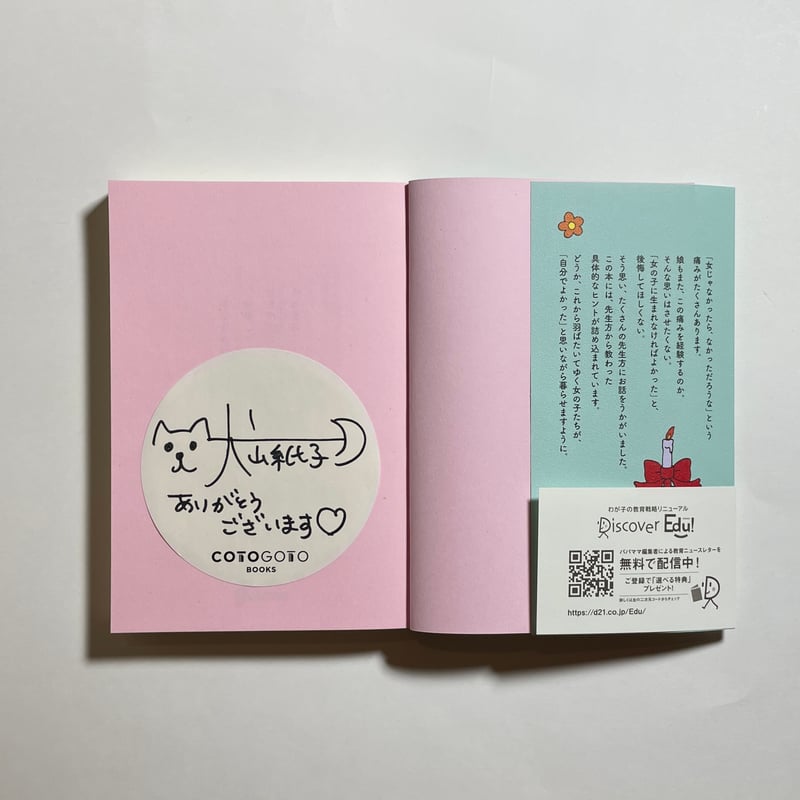 犬山紙子
ありがとう
ございます♡
COTOGOTO
BOOKS
「女じゃなかったら、なかっただろうな」という
痛みがたくさんあります。
娘もまた、この痛みを経験するのか、
そんな思いはさせたくない。
「女の子に生まれなければよかった」と、
後悔してほしくない。
そう思い、たくさんの先生方にお話をうかがいました。
この本には、先生方から教わった
具体的なヒントが詰め込まれています。
どうか、これから羽ばたいてゆく女の子たちが、
「自分でよかった」と思いながら暮らせますように。
わが子の教育戦略リニューアル
Discover Edu!
パパママ編集者による教育ニュースレターを
無料で配信中!
ご登録で「選べる特典」
プレゼント!
詳しくは左の二次元コードからチェック
https://d21.co.jp/Edu/